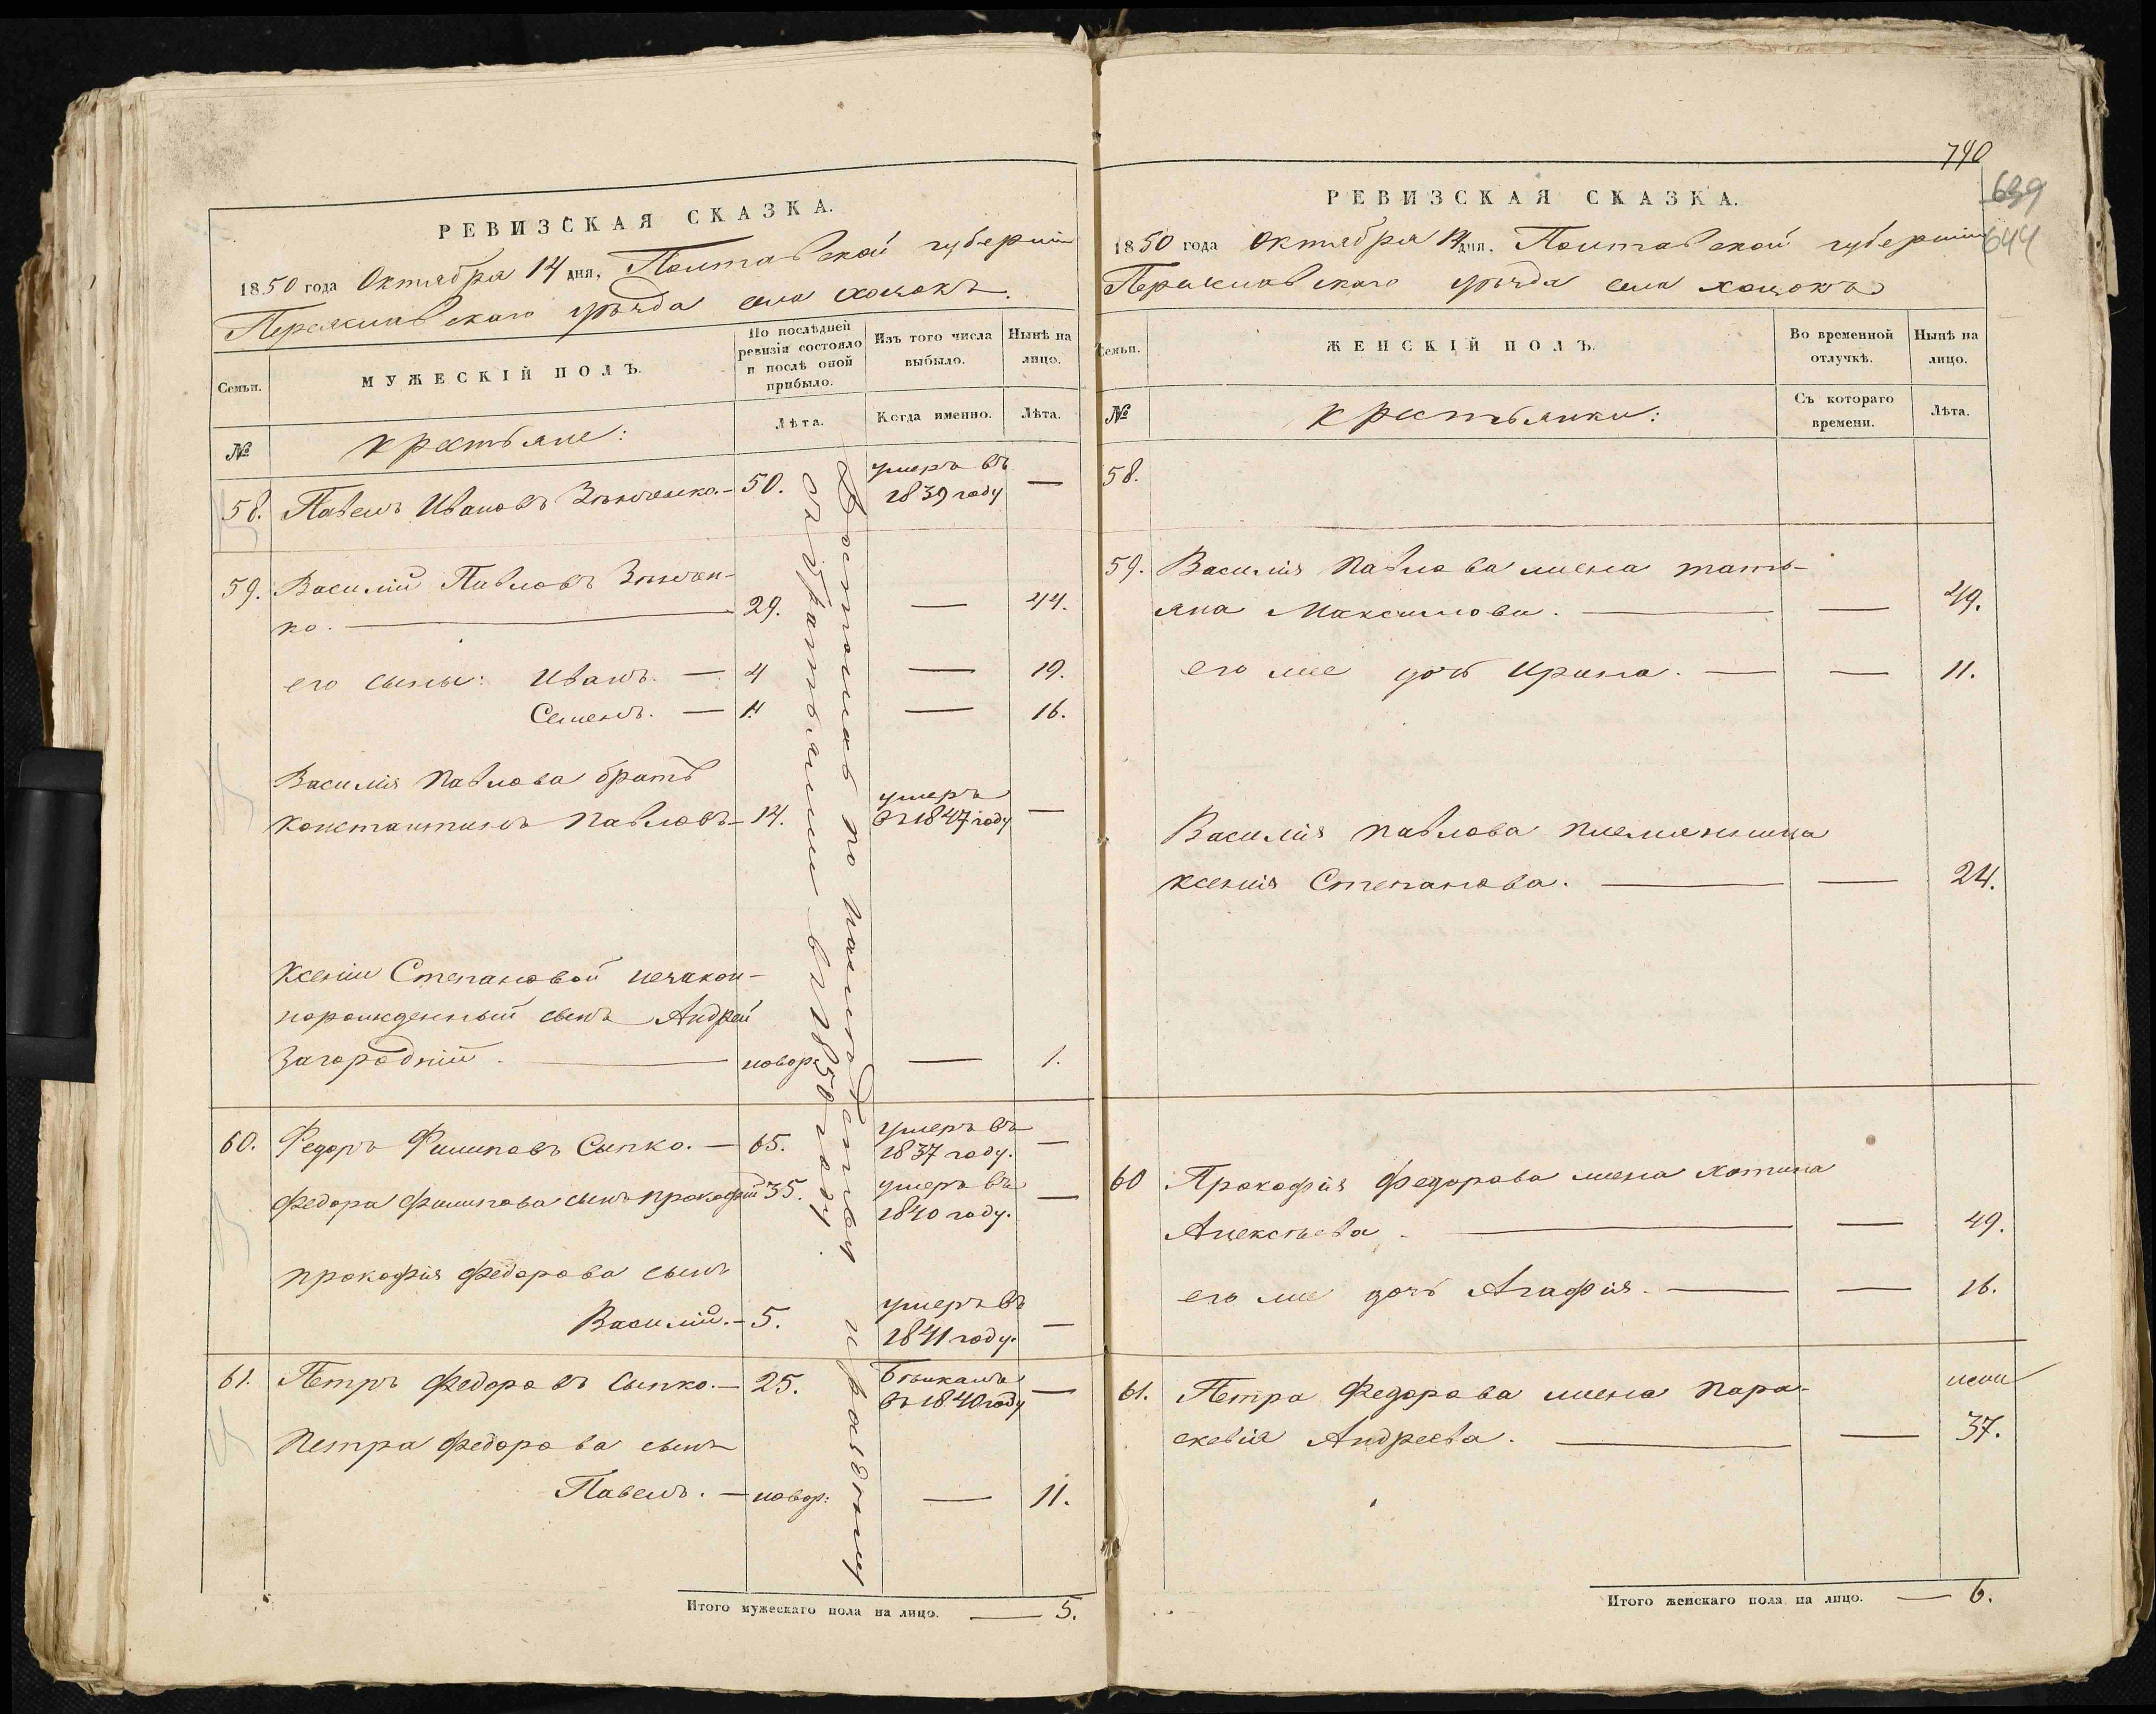 РЕВИЗСКАЯ СКАЗКА.
1850 года Октября 14 дня, Полтавской губернии
Переяславскаго уѣзда села Хоцокъ.
Семьи.
МУЖЕСКІЙ ПОЛЪ.
По послѣдней ревизіи состояло и послѣ оной прибыло.
Изъ того числа выбыло.
Нынѣ на лицо.
№
Крестьяне:
Лѣта.
Когда именно.
Лѣта.
58. Павелъ Ивановъ Зѣнченко. — 50. умеръ въ 1839 году —
59. Василій Павловъ Зѣнчен-
ко. — 29. — 44.
его сыны: Иванъ. — 4 — 19.
Семенъ. — 1. — 16.
Василія Павлова братъ
Константинъ Павловъ — 14. умеръ въ 1847 году —
Ксеніи Степановой незакон-
норожденный сынъ Андрей
Загородній. — новор. — 1.
60. Федоръ Филиповъ Сипко. — 65. умеръ въ 1837 году. —
Федора Филипова сынъ Прокофій 35. умеръ въ 1840 году. —
Прокофія Федорова сынъ
Василій. — 5. умеръ въ 1841 году. —
61. Петръ Федоровъ Сипко. — 25. Бѣжалъ въ 1840 году —
Петра Федорова сынъ
Павелъ. — новор: — 11.
по
въ 1850 году.
Итого мужескаго пола на лицо. — 5.
740
639
644
РЕВИЗСКАЯ СКАЗКА.
1850 года Октября 14 дня, Полтавской губерніи
Переяславскаго уѣзда села Хоцокъ
Семьи.
ЖЕНСКІЙ ПОЛЪ.
Во временной отлучкѣ.
Нынѣ на лицо.
№
Крестьянки:
Съ котораго времени.
Лѣта.
58.
59. Василія Павлова жена Тать-
яна Максимова. — — 49.
его же дочь Ирина. — — 11.
Василія Павлова племянница
Ксенія Степанова. — — 24.
60 Прокофія Федорова жена
Алексѣева. — — 49.
его же дочь Агафія. — — 16.
61. Петра Федорова жена Пара-
скевія Андреева. — — 37.
Итого женскаго пола на лицо. — 6.